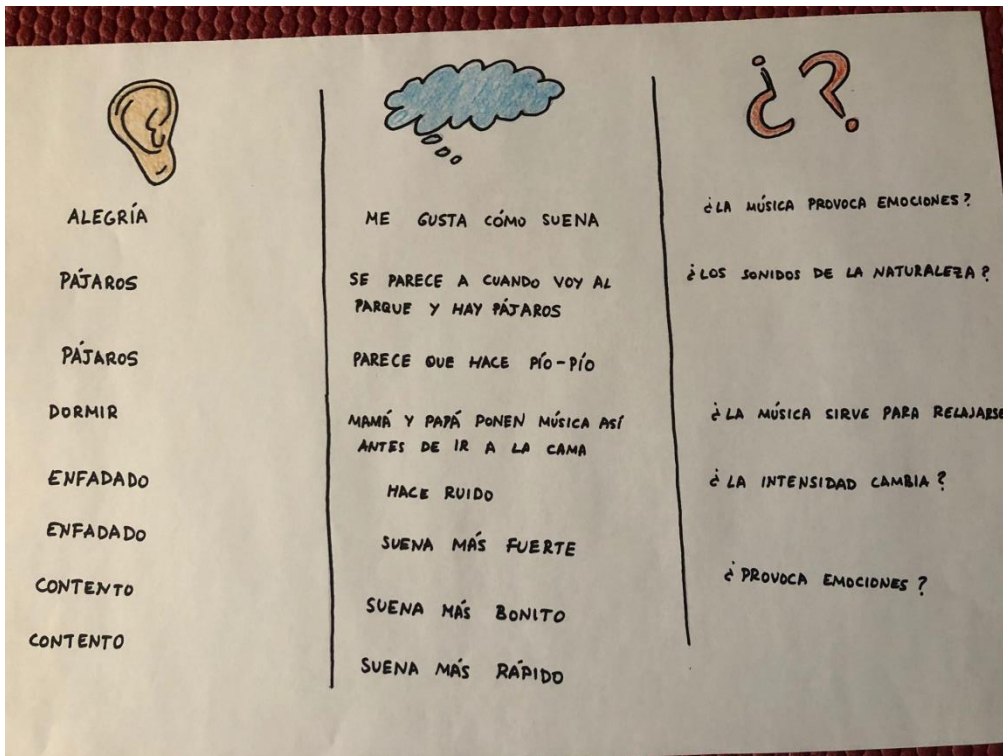 ¿?
ALEGRÍA
PÁJAROS
PÁJAROS
DORMIR
ENFADADO
ENFADADO
CONTENTO
CONTENTO
ME GUSTA CÓMO SUENA
SE PARECE A CUANDO VOY AL
PARQUE Y HAY PÁJAROS
PARECE QUE HACE PÍO-PÍO
MAMÁ Y PAPÁ PONEN MÚSICA ASÍ
ANTES DE IR A LA CAMA
HACE RUIDO
SUENA MÁS FUERTE
SUENA MÁS BONITO
SUENA MÁS RÁPIDO
¿LA MÚSICA PROVOCA EMOCIONES?
¿LOS SONIDOS DE LA NATURALEZA?
¿LA MÚSICA SIRVE PARA RELAJARSE
¿LA INTENSIDAD CAMBIA?
¿PROVOCA EMOCIONES?